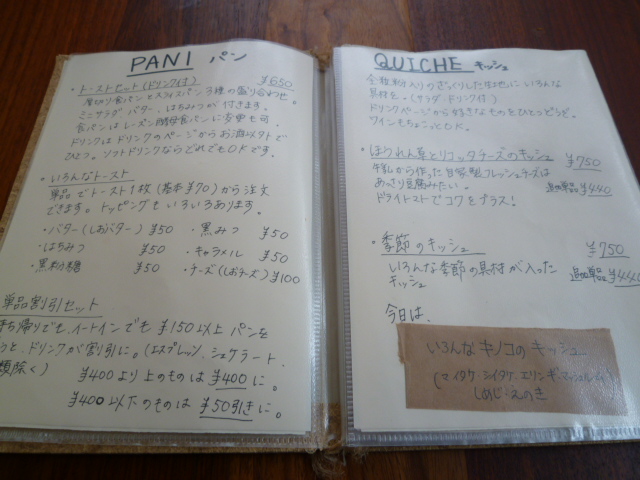 PANI パン
・トーストセット(ドリンク付) ¥650
厚切り食パンとスライスパン3種の盛り合わせ。
ミニサラダ バター、はちみつが付きます。
食パンはレーズン酵母食パンに変更も可。
ドリンクはドリンクのページからお酒以外で
ひとつ。ソフトドリンクならどれでもOKです。
・いろんなトースト
単品でトースト1枚(基本¥70)から注文
できます。トッピングもいろいろあります。
・バター(しおバター) ¥50 ・黒みつ ¥50
・はちみつ ¥50 ・キャラメル ¥50
・黒粉糖 ¥50 ・チーズ(しおチーズ) ¥100
単品割引セット
ち帰りでも、イートインでも ¥150以上 パンを
うと、ドリンクが割引に。(エスプレッソ、シェケラート、
類除く)
¥400より上のものは ¥400に。
¥400以下のものは ¥50引きに。
QUICHE キッシュ
全粒粉入りのざっくりした生地にいろんな
具材を。(サラダ・ドリンク付)
ドリンクページから好きなものをひとつどうぞ。
ワインもちょこっとOK。
・ほうれん草とリコッタチーズのキッシュ ¥750
牛乳から作った自家製フレッシュチーズは
あっさり豆腐みたい。 追加単品¥440
ドライトマトでコクをプラス!
・季節のキッシュ ¥750
いろんな季節の具材が入った 追加単品¥440
キッシュ
今日は、
いろんなキノコのキッシュ
(マイタケ・シイタケ・エリンギ・マッシュルーム
しめじ・えのき